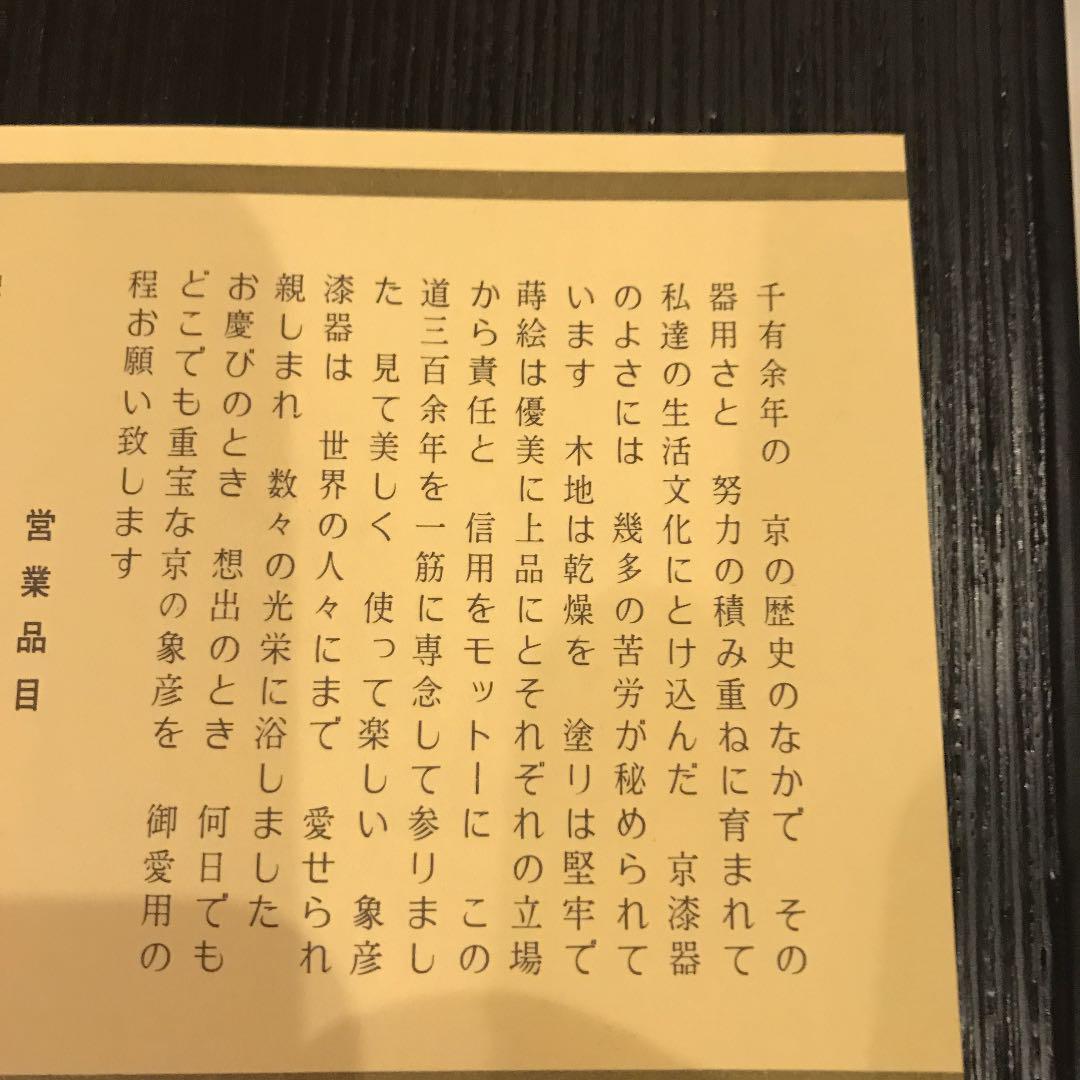 千有余年の　京の歴史のなかで　その
器用さと　努力の積み重ねに育まれて
私達の生活文化にとけ込んだ　京漆器
のよさには　幾多の苦労が秘められて
います　木地は乾燥を　塗リは堅牢で
蒔絵は優美に上品にとそれぞれの立場
から責任と　信用をモットーに　この
道三百余年を一筋に専念して参リまし
た　見て美しく　使って楽しい　象彦
漆器は　世界の人々にまで　愛せられ
親しまれ　数々の光栄に浴しました
お慶びのとき　想出のとき　何日でも
どこでも重宝な京の象彦を　御愛用の
程お願い致します
営業品目